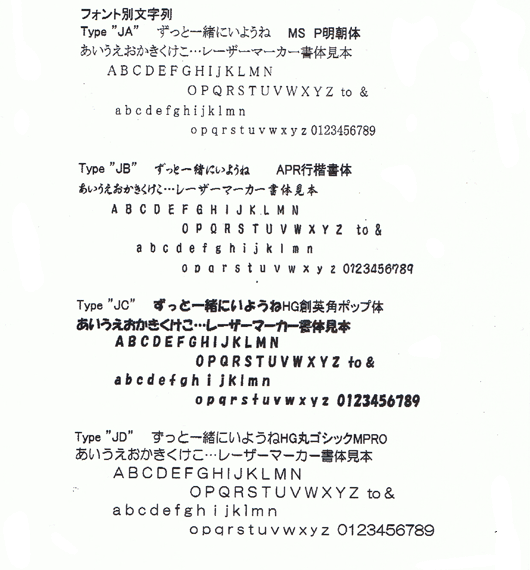 フォント別文字列
Type "JA" ずっと一緒にいようね MS P明朝体
あいうえおかきくけこ…レーザーマーカー書体見本
ABCDEFGHIJKLMN
OPQRSTUVWXYZ to &
abcdefghijklmn
opqrstuvwxyz 0123456789
Type "JB" ずっと一緒にいようね APR行楷書体
あいうえおかきくけこ…レーザーマーカー書体見本
ABCDEFGHIJKLMN
OPQRSTUVWXYZ to &
abcdefghijklmn
opqrstuvwxyz 0123456789
Type "JC" ずっと一緒にいようねHG創英角ポップ体
あいうえおかきくけこ…レーザーマーカー書体見本
ABCDEFGHIJKLMN
OPQRSTUVWXYZ to &
abcdefghijklmn
opqrstuvwxyz 0123456789
Type "JD" ずっと一緒にいようねHG丸ゴシックMPRO
あいうえおかきくけこ…レーザーマーカー書体見本
ABCDEFGHIJKLMN
OPQRSTUVWXYZ to &
abcdefghijklmn
opqrstuvwxyz 0123456789